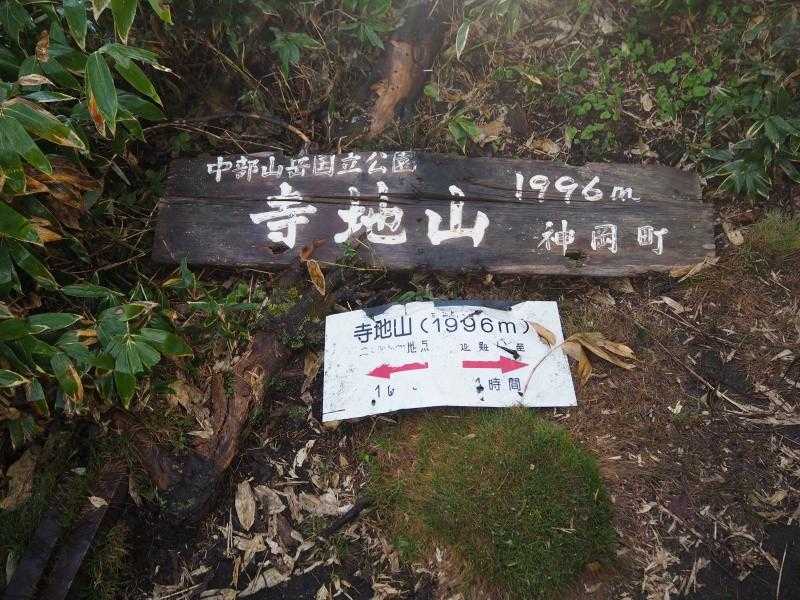 中部山岳国立公園
寺地山 1996m
神岡町
寺地山(1996m)
地点 避難
時間